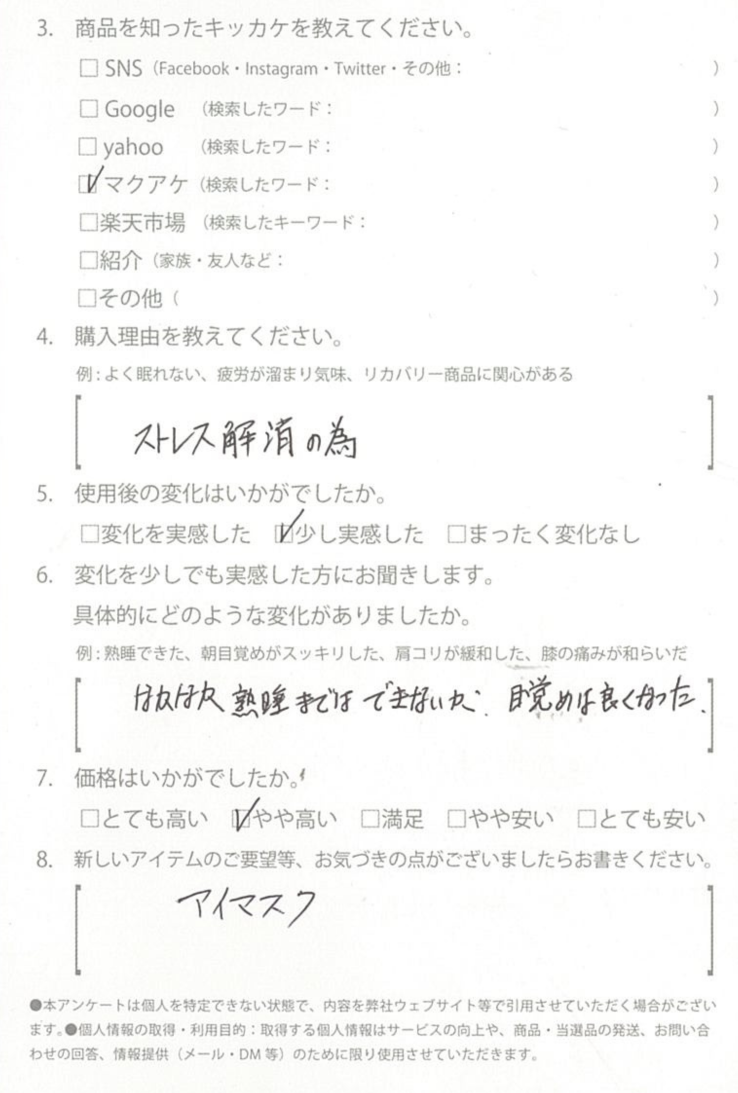 3. 商品を知ったキッカケを教えてください。
□ SNS（Facebook・Instagram・Twitter・その他： ）
□ Google （検索したワード： ）
□ yahoo （検索したワード： ）
☑ マクアケ（検索したワード： ）
□楽天市場 （検索したキーワード： ）
□紹介（家族・友人など： ）
□その他（ ）
4. 購入理由を教えてください。
例：よく眠れない、疲労が溜まり気味、リカバリー商品に関心がある
ストレス解消の為
5. 使用後の変化はいかがでしたか。
□変化を実感した ☑少し実感した □まったく変化なし
6. 変化を少しでも実感した方にお聞きします。
具体的にどのような変化がありましたか。
例：熟睡できた、朝目覚めがスッキリした、肩コリが緩和した、膝の痛みが和らいだ
熟睡まではできないが、目覚めは良くなった.
7. 価格はいかがでしたか。
□とても高い ☑やや高い □満足 □やや安い □とても安い
8. 新しいアイテムのご要望等、お気づきの点がございましたらお書きください。
アイマスク
●本アンケートは個人を特定できない状態で、内容を弊社ウェブサイト等で引用させていただく場合がござい
ます。●個人情報の取得・利用目的：取得する個人情報はサービスの向上や、商品・当選品の発送、お問い合
わせの回答、情報提供（メール・DM 等）のために限り使用させていただきます。